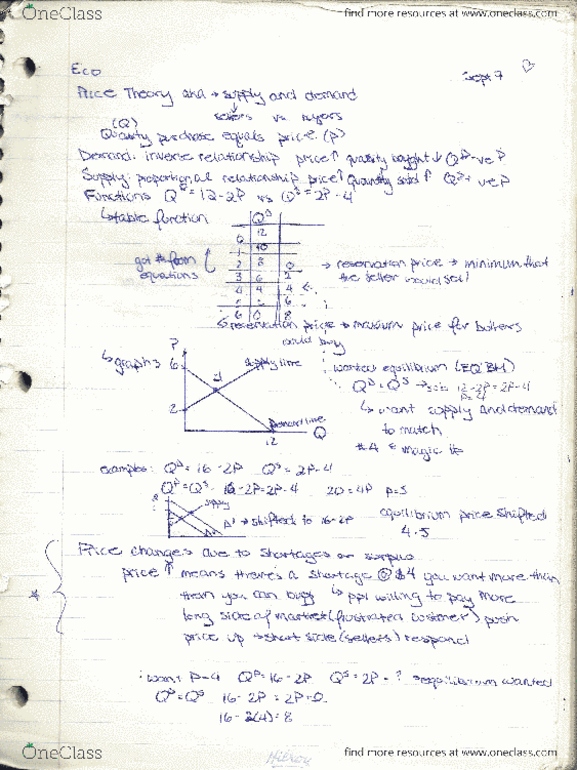 OneClass
find more resources at www.oneclass.com
Eco
Sept 7
Price Theory and → supply and demand
sellers vs buyers
(Q)
Quantity purchase equals price (P)
Demand: inverse relationship price↑ quantity bought↓ Q^D -ve P
Supply: proportional relationship price↑ quantity sold↑ Q^S + ve P
Functions Q^D = 12-2P vs Q^S = 2P-4
↳table function
Q^D
0 12
1 10
2 8 0
3 6 2
4 4 4
6
6 0 8
got # from
equations
→ reservation price → minimum that
the seller would sell
↳reservation price → maximum price for
could buy
↳graphs
P
6
2
4
supply line
Demand line
12
Q
wanted equilibrium (EQ'BM)
Q^D = Q^S → 12-2P = 2P-4
↳ want supply and demand
to match
#4 = magic
examples: Q^D = 16-2P Q^S = 2P-4
Q^D = Q^S 16-2P=2P-4 20=4P P=5
supply
→ shifted to 16-2P
equilibrium price shifted
4.5
Price changes due to shortages or surplus
price ↑ means there's a shortage @ $4 you want more than
than you can buy ↳ ppl willing to pay more
long side of market (frustrated customer) push
price up → short side (sellers) respond
want P=4 Q^D = 16-2P Q^S = 2P - ? equilibrium wanted
Q^D = Q^S 16-2P = 2P-
16-2(4) = 8
Hilroy
OneClass
find more resources at www.oneclass.com